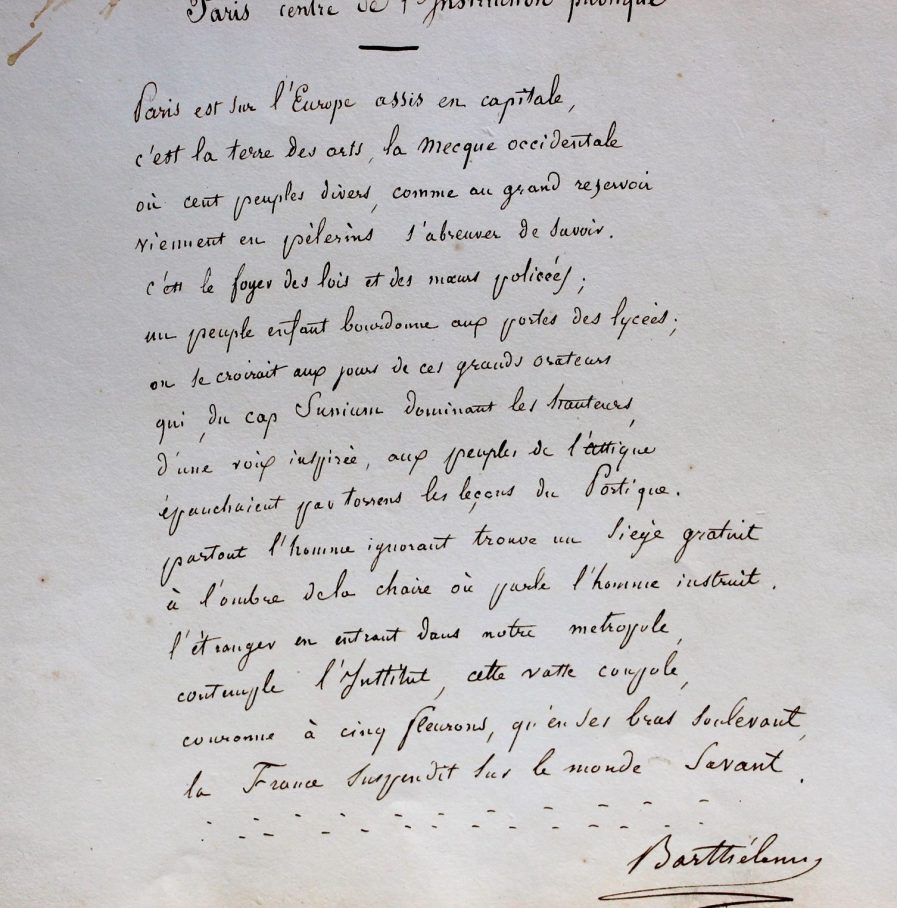 Paris centre de l'Instruction publique
Paris est sur l'Europe assis en capitale,
c'est la terre des arts, la Mecque occidentale
où cent peuples divers, comme au grand reservoir
viennent en pèlerins s'abreuver de savoir.
c'est le foyer des lois et des mœurs policées ;
un peuple enfant bourdonne aux portes des lycées ;
on se croirait aux jours de ces grands orateurs
qui, du cap Sunium dominant les hauteurs,
d'une voix inspirée, aux peuples de l'Attique
épanchaient par torrens les leçons du Portique.
partout l'homme ignorant trouve un siège gratuit
à l'ombre de la chaire où parle l'homme instruit.
l'étranger en entrant dans notre metropole,
contemple l'Institut, cette vaste coupole,
couronne à cinq fleurons, qu'en ses bras soulevant,
la France suspendit sur le monde Savant.
Barthélemy